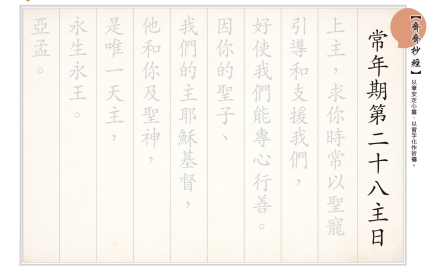 【齊齊抄經】
以筆安定心靈，以習字化作祈禱。
常年期第二十八主日
上主，求你時常以聖寵
引導和支援我們，
好使我們能專心行善。
因你的聖子、
我們的主耶穌基督，
他和你及聖神，
是唯一天主，
永生永王。
亞孟。